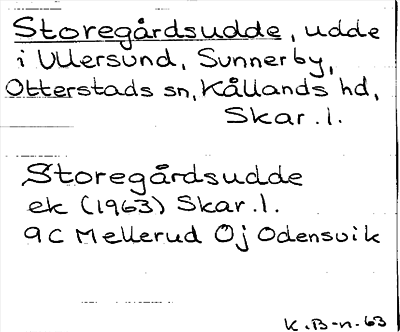 Storegårdsudde, udde
i Ullersund, Sunnerby,
Otterstads sn, Kållands hd,
Skar. l.
Storegårdsudde
ek (1963) Skar. l.
9C Mellerud Öj Odensvik
K. B-n. 63